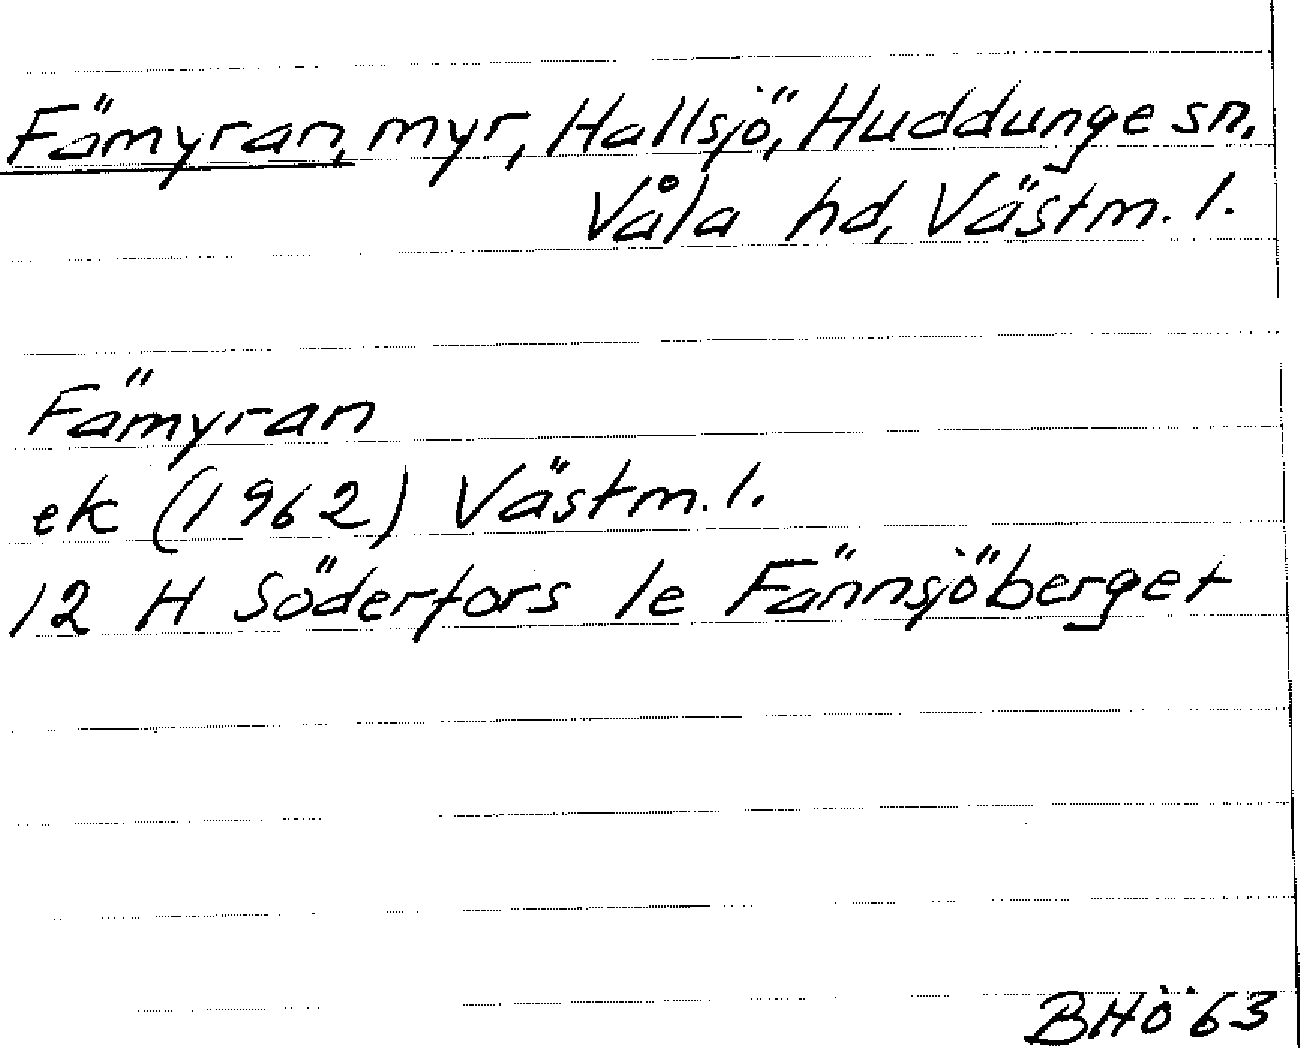 Fämyran, myr, Hallsjö, Huddunge sn.
Våla hd, Västm. l.
Fämyran
ek (1962) Västm. l.
12 H Söderfors 1e Fännsjöberget
BHÖ 63